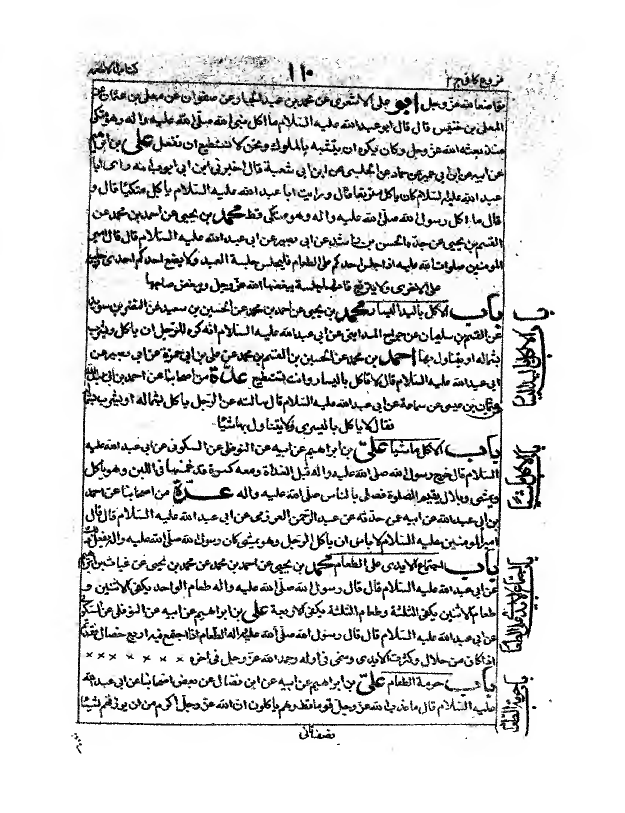 فروع كافي ج ٢
١١٠
كتاب الاطعمه
تواضعا لله عز وجل ابو علي الاشعري عن محمد بن عبد الجبار عن صفوان عن معلى بن عثمان عن
المعلى بن خنيس قال قال ابو عبد الله عليه السلام ما اكل نبي الله صلى الله عليه واله وهو متكئ
منذ بعثه الله عز وجل وكان يكره ان يتشبه بالملوك ونحن لا نستطيع ان نفعل علي بن ابراهيم
عن ابيه عن ابن ابي عمير عن حماد عن الحلبي عن ابن ابي شعبة قال اخبرني ابن ابي ايوب انه راى ابا
عبد الله عليه السلام كان ياكل متربعا قال ورايت ابا عبد الله عليه السلام ياكل متكئا قال و
قال ما اكل رسول الله صلى الله عليه واله وهو متكئ قط محمد بن يحيى عن احمد بن محمد عن
القسم بن يحيى عن جده الحسن بن راشد عن ابي بصير عن ابي عبد الله عليه السلام قال قال امير
المومنين صلوات الله عليه اذا جلس احدكم على الطعام فليجلس جلسة العبد ولا يضع احدكم احدى رجليه
على الاخرى ولا يتربع فانها جلسة يبغضها الله عز وجل ويبغض صاحبها
باب الاكل باليد اليسار محمد بن يحيى عن احمد بن محمد عن الحسين بن سعيد عن النضر بن سويد
عن القسم بن سليمان عن جراح المدايني عن ابي عبد الله عليه السلام انه كره للرجل ان ياكل ويشرب
بشماله او يتناول بها احمد بن محمد عن الحسين عن القسم بن محمد عن علي بن ابي حمزة عن ابي بصير عن
ابي عبد الله عليه السلام قال لا تاكل باليسار وانت تستطيع عدة من اصحابنا عن احمد بن ابي عبد الله
عن عثمان بن عيسى عن سماعة عن ابي عبد الله عليه السلام قال سالته عن الرجل ياكل بشماله او يشرب بها
فقال لا ياكل باليسرى ولا يتناول بها شيئا
باب الاكل ماشيا علي بن ابراهيم عن ابيه عن النوفلي عن السكوني عن ابي عبد الله عليه
السلام قال خرج رسول الله صلى الله عليه واله قبل الغداة ومعه كسرة قد غمسها في اللبن وهو ياكل
ويمشي وبلال يقيم الصلوة فصلى بالناس صلى الله عليه واله عدة من اصحابنا عن احمد
بن ابي عبد الله عن ابيه عن حدثه عن عبد الرحمن العرزمي عن ابي عبد الله عليه السلام قال قال
امير المومنين عليه السلام لا باس ان ياكل الرجل وهو يمشي كان رسول الله صلى الله عليه واله يفعل
باب اجتماع الايدي على الطعام محمد بن يحيى عن احمد بن محمد عن محمد بن يحيى عن غياث بن ابراهيم
عن ابي عبد الله عليه السلام قال قال رسول الله صلى الله عليه واله طعام الواحد يكفي الاثنين و
طعام الاثنين يكفي الثلثة وطعام الثلثة يكفي الاربعة علي بن ابراهيم عن ابيه عن النوفلي عن السكوني
عن ابي عبد الله عليه السلام قال قال رسول الله صلى الله عليه واله الطعام اذا اجتمع فيه اربع خصال فقد تم
اذا كان من حلال وكثرت الايدي وسمي في اوله وحمد الله عز وجل في اخره × × × × × × ×
باب حرمة الطعام علي بن ابراهيم عن ابيه عن ابن فضال عن بعض اصحابنا عن ابي عبد الله
عليه السلام قال ما عذب الله عز وجل قوما قط وهم ياكلون ان الله عز وجل اكرم من ان يرزقهم شيئا
باب الاكل باليد اليسار
باب الاكل ماشيا
باب اجتماع الايدي على الطعام
باب حرمة الطعام